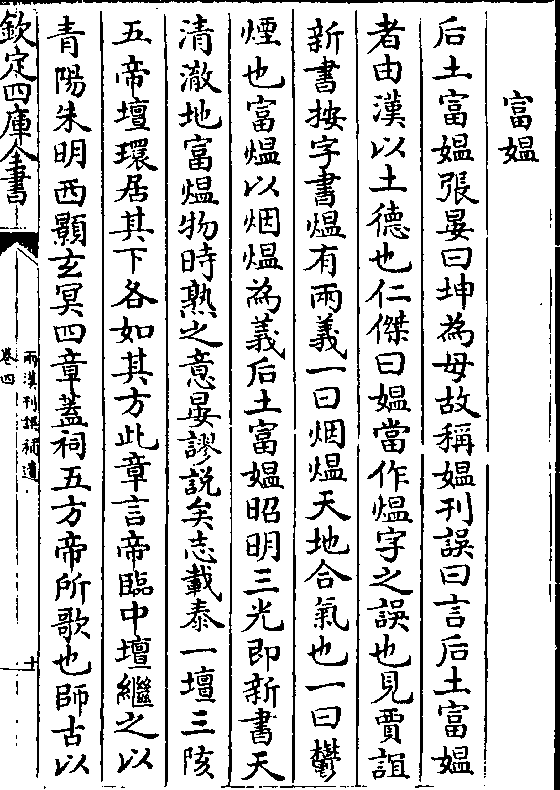 富媪
后土富媪張晏曰坤為母故稱媪刊誤曰言后土富媪
者由漢以土德也仁傑曰媪當作煴字之誤也見賈誼
新書按字書煴有兩義一曰烟煴天地合氣也一曰鬱
煙也富煴以烟煴為義后土富媪昭明三光即新書天
清澈地富煴物時熟之意晏謬説矣志載泰一壇三陔
五帝壇環居其下各如其方此章言帝臨中壇繼之以
青陽朱明西顥玄冥四章蓋祠五方帝所歌也師古以
欽定四庫全書
兩漢刊誤補遺
卷四
十